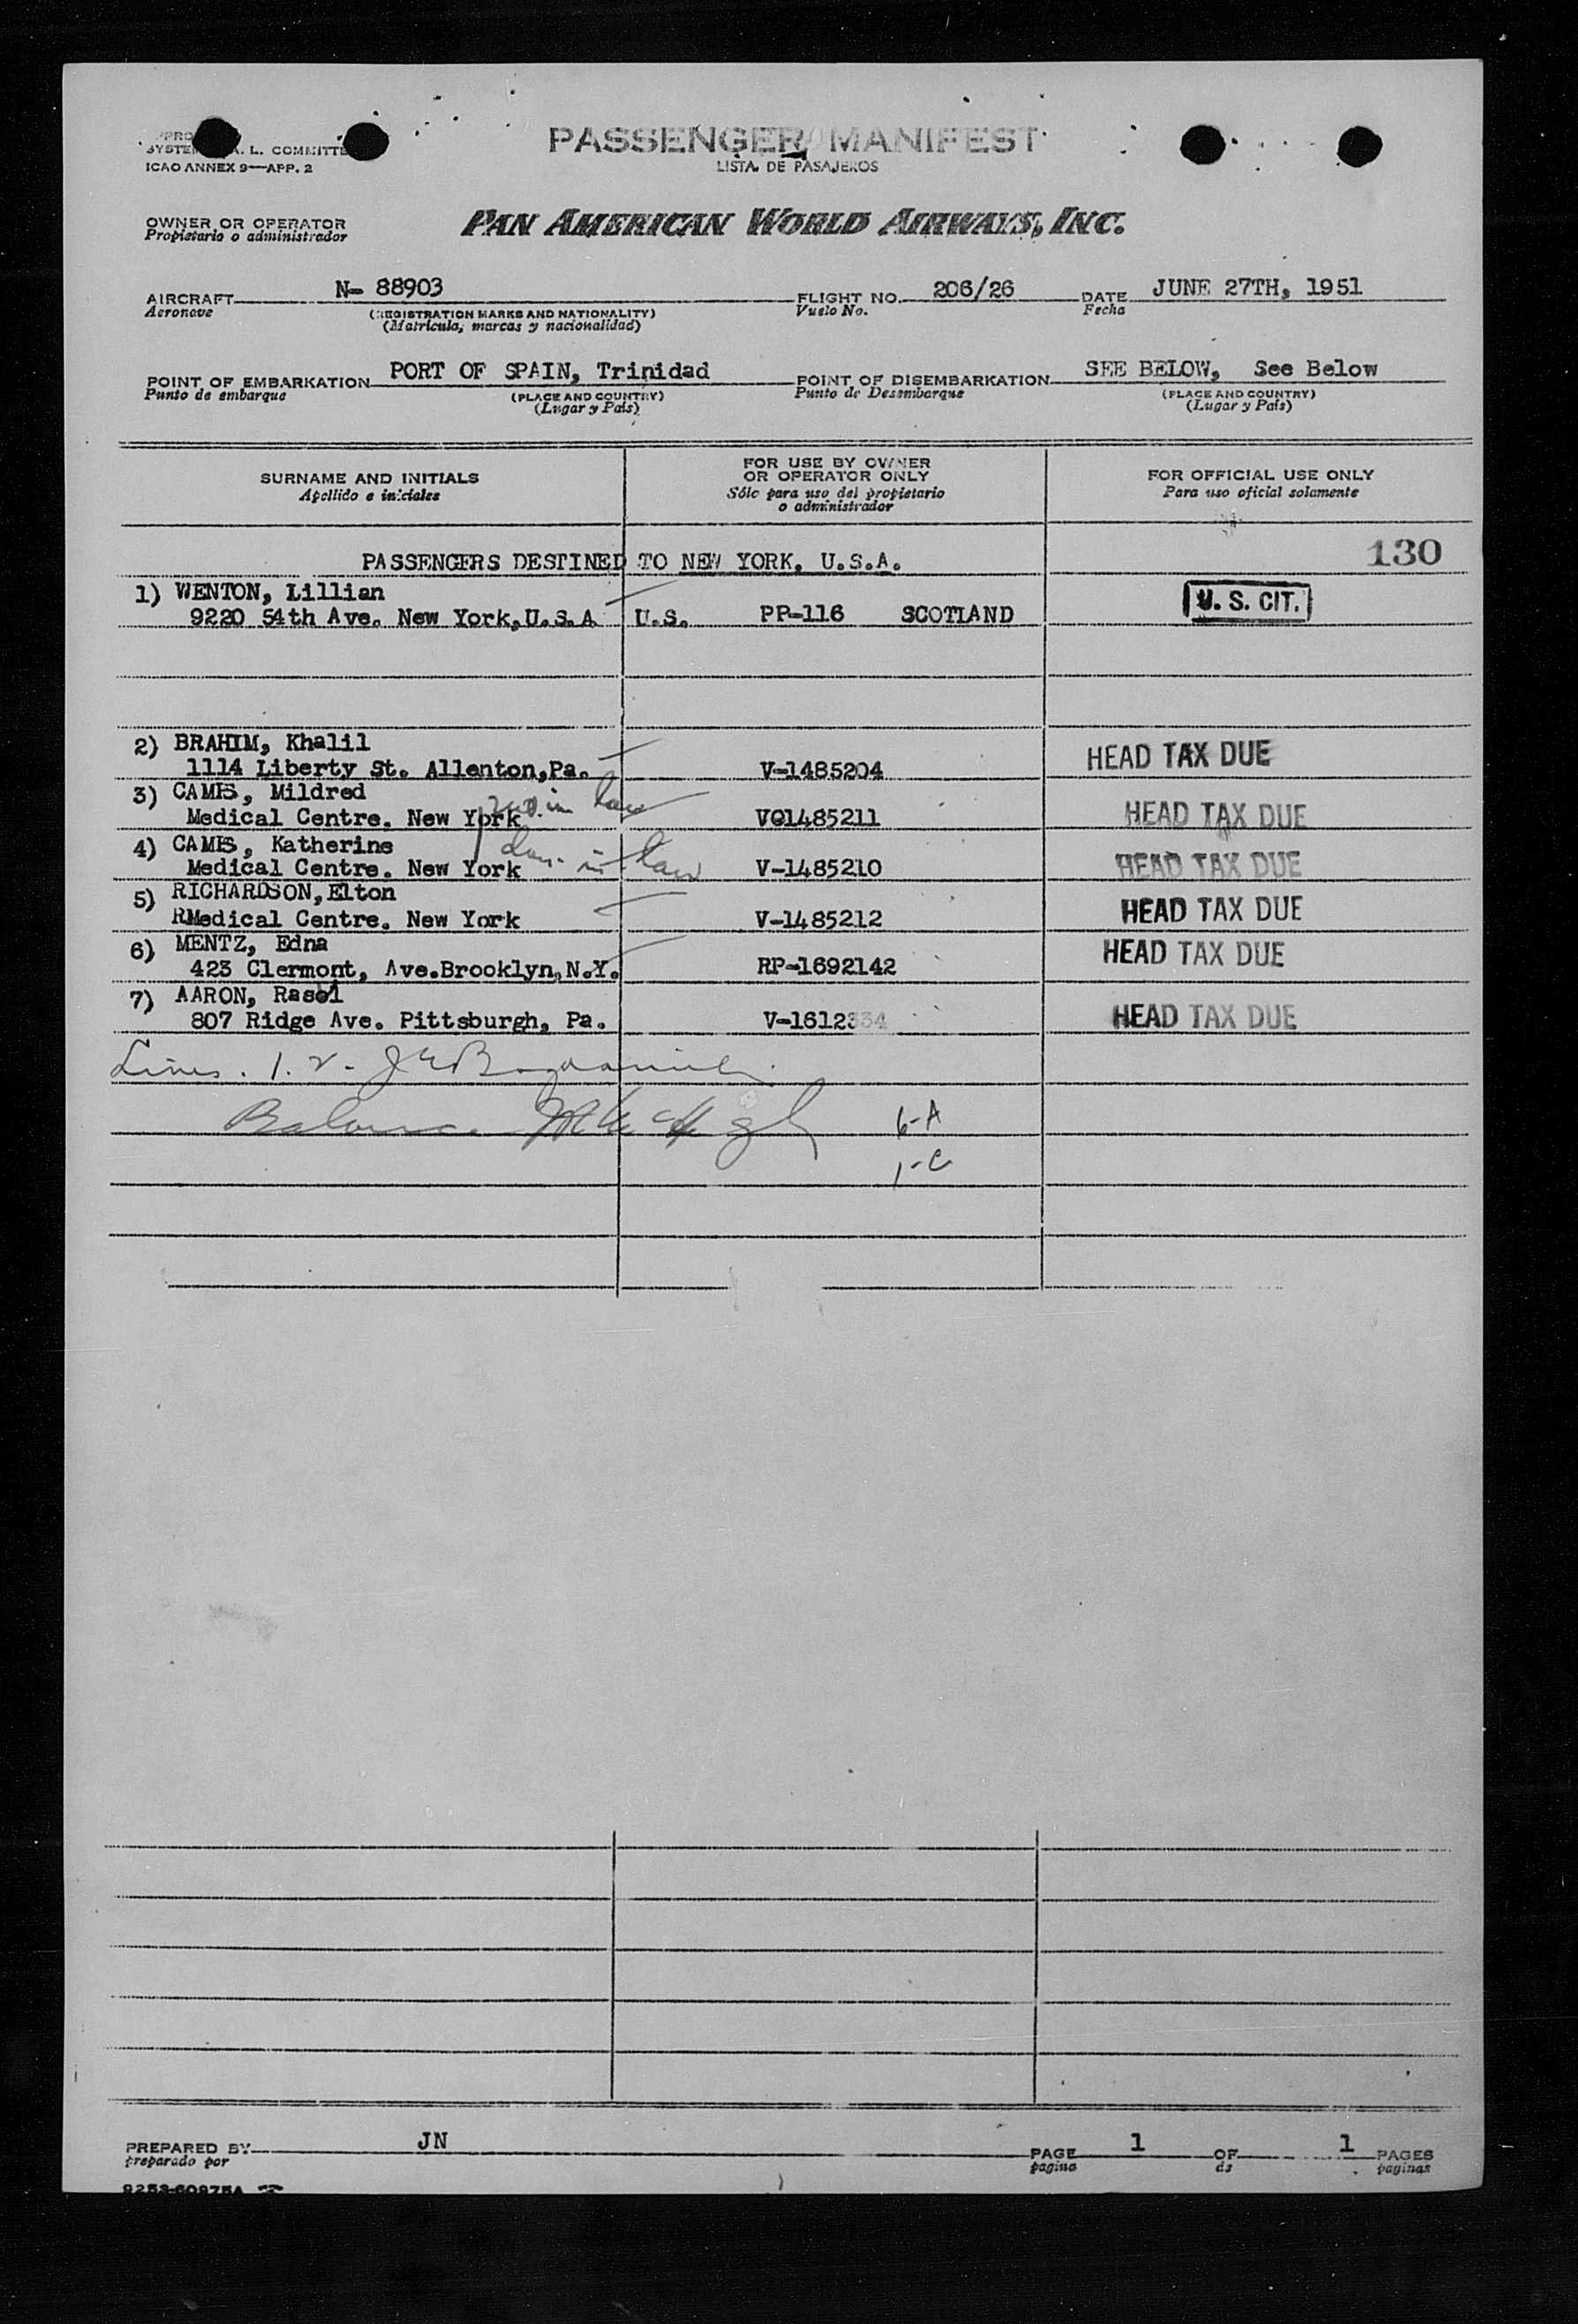 L. COMMITTE
ICAO ANNEX 9—APP. 2
PASSENGER MANIFEST
LISTA DE PASAJEROS
OWNER OR OPERATOR
Propietario o administrador
PAN AMERICAN WORLD AIRWAYS, INC.
AIRCRAFT N- 88903 FLIGHT NO. 206/26 DATE JUNE 27TH, 1951
Aeronave (REGISTRATION MARKS AND NATIONALITY) Vuelo No. Fecha
(Matrícula, marcas y nacionalidad)
POINT OF EMBARKATION PORT OF SPAIN, Trinidad POINT OF DISEMBARKATION SEE BELOW, See Below
Punto de embarque (PLACE AND COUNTRY) Punto de Desembarque (PLACE AND COUNTRY)
(Lugar y País) (Lugar y País)
SURNAME AND INITIALS FOR USE BY OWNER OR OPERATOR ONLY FOR OFFICIAL USE ONLY
Apellido e iniciales Sólo para uso del propietario o administrador Para uso oficial solamente
PASSENGERS DESTINED TO NEW YORK. U.S.A. 130
1) WENTON, Lillian
9220 54th Ave. New York,U.S.A U.S. PP-116 SCOTLAND U. S. CIT.
2) BRAHIM, Khalil
1114 Liberty St. Allenton,Pa. V-1485204 HEAD TAX DUE
3) CAMIS, Mildred
Medical Centre. New York in law VO1485211 HEAD TAX DUE
4) CAMIS, Katherine
Medical Centre. New York in law V-1485210 HEAD TAX DUE
5) RICHARDSON,Elton
RMedical Centre. New York V-1485212 HEAD TAX DUE
6) MENTZ, Edna
423 Clermont, Ave.Brooklyn,N.Y. RP-1692142 HEAD TAX DUE
7) AARON, Rasul
807 Ridge Ave. Pittsburgh, Pa. V-1612334 HEAD TAX DUE
Lines. 1. 2 -
Balance 6-A
1-C
PREPARED BY JN PAGE 1 OF 1 PAGES
preparado por pagina de paginas
9253-60975A